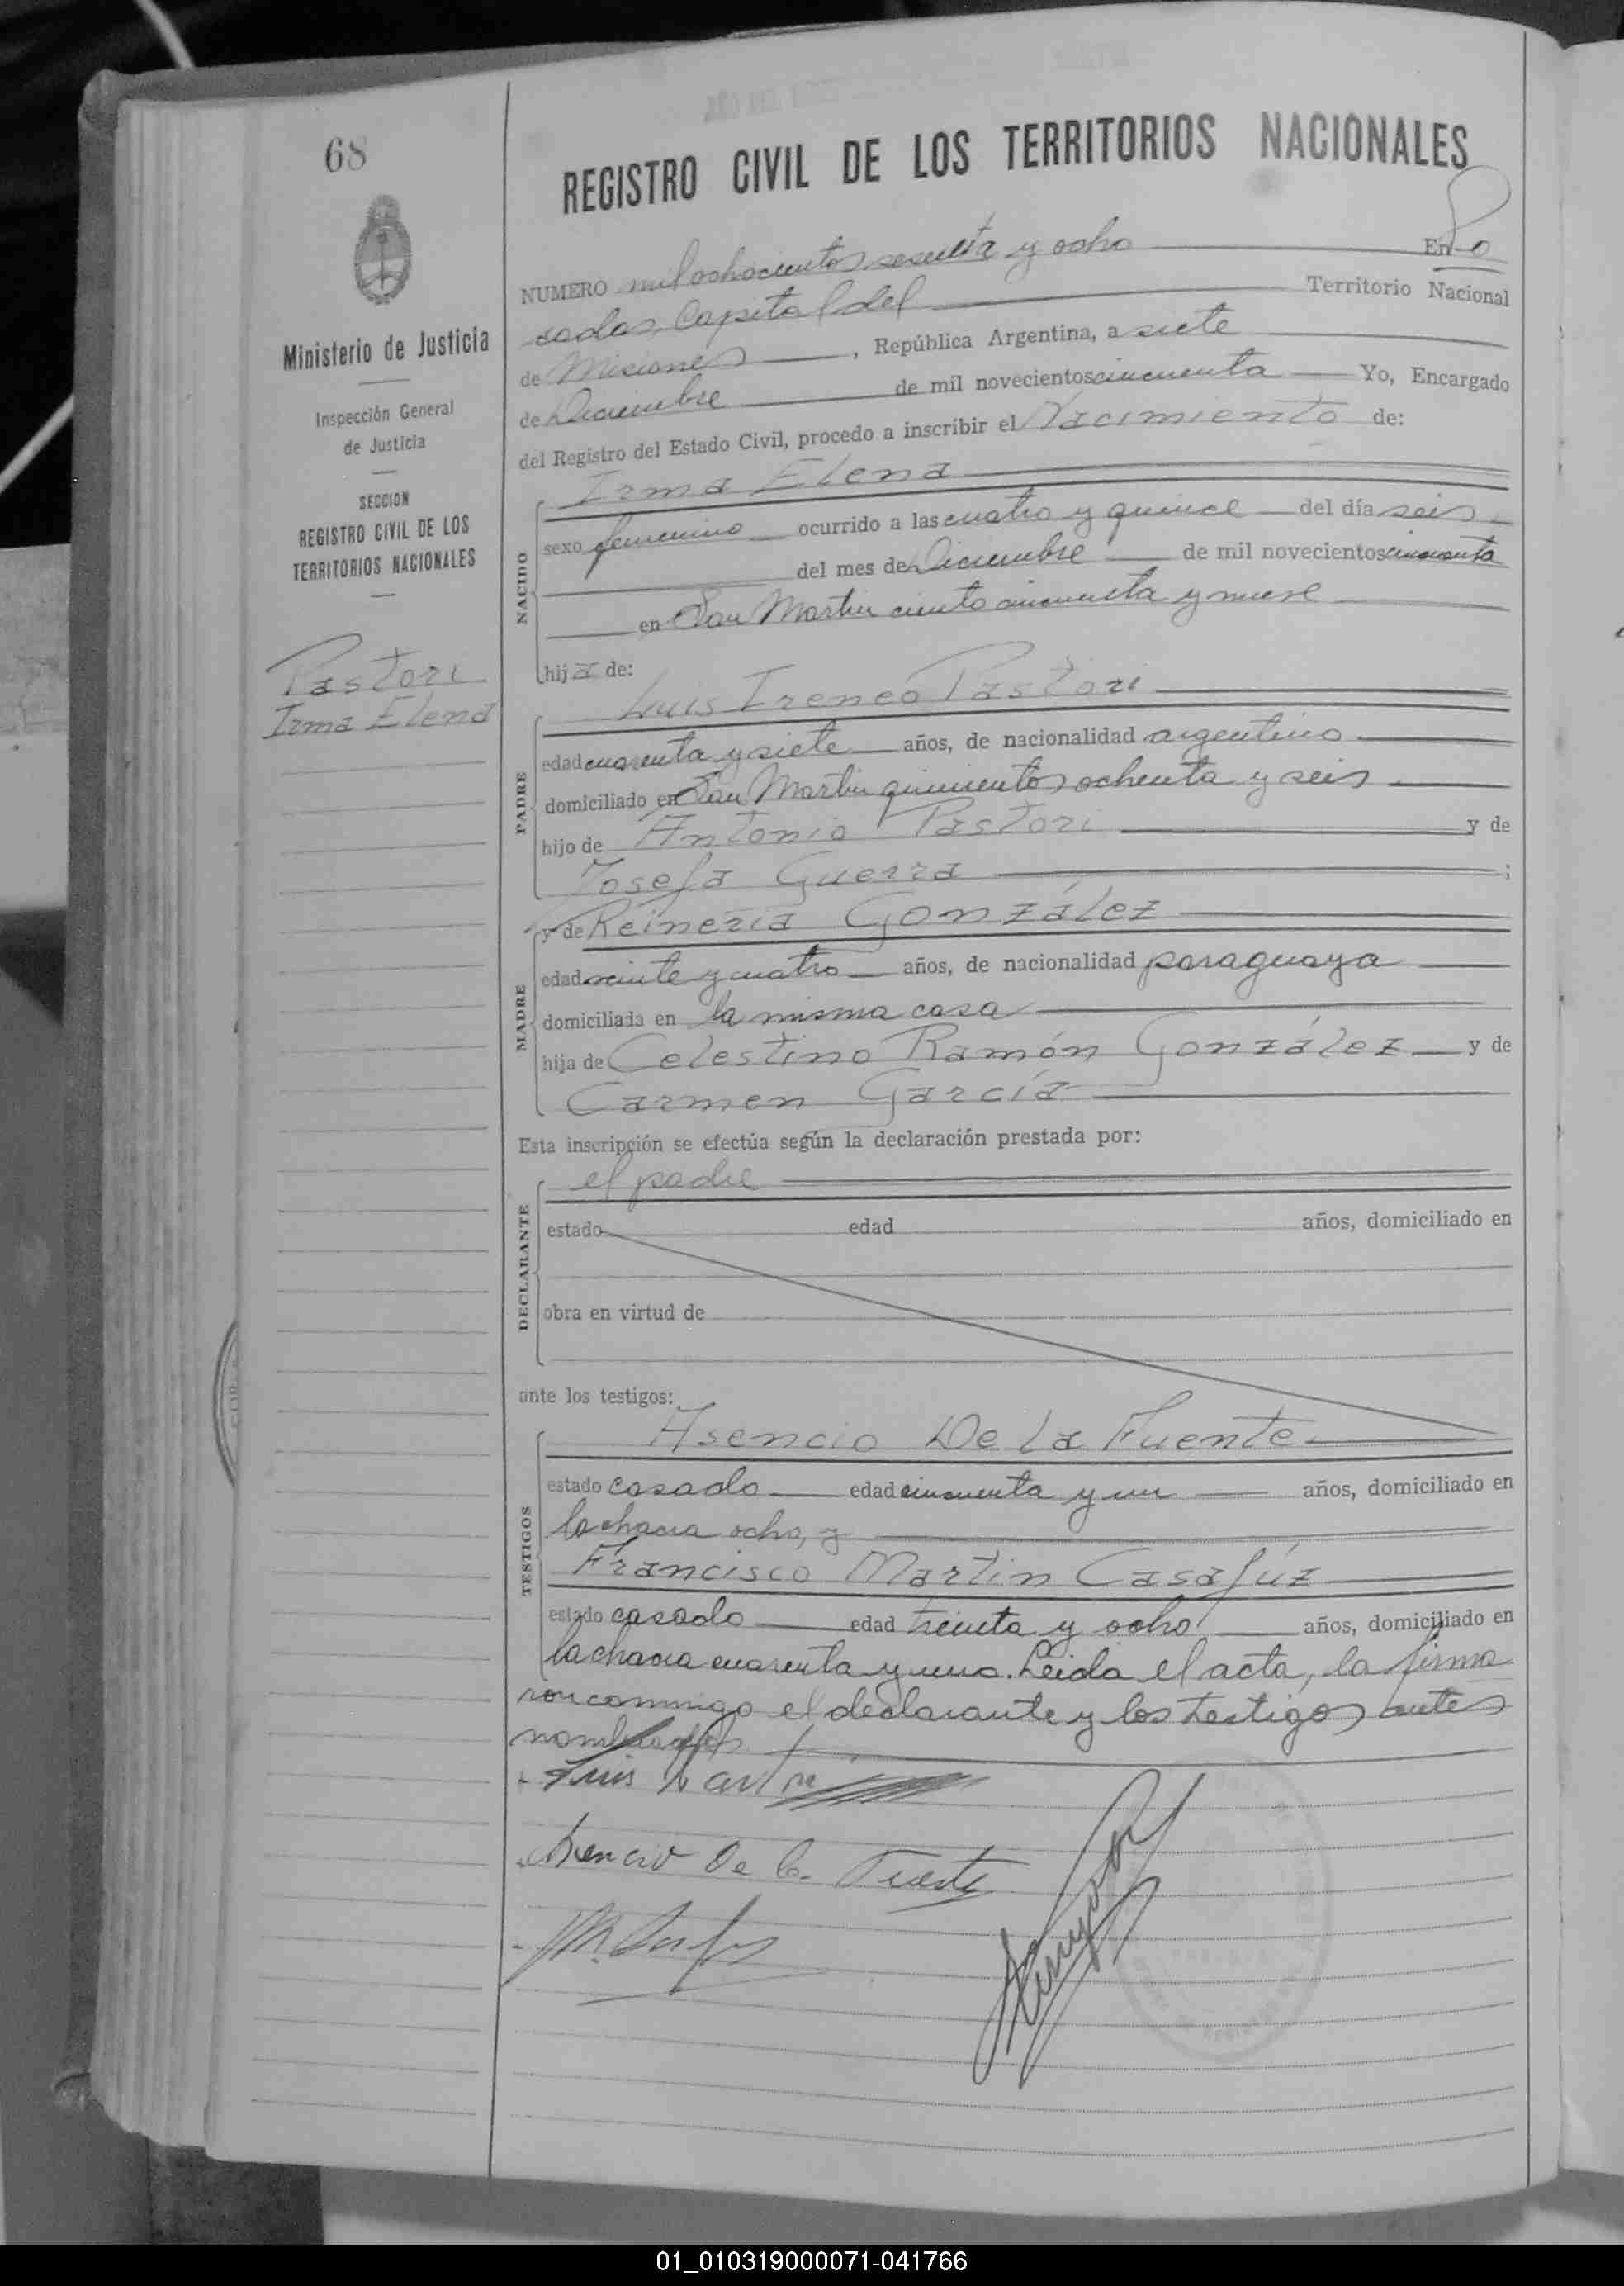 68
REGISTRO CIVIL DE LOS TERRITORIOS NACIONALES
NUMERO mil ochocientos sesenta y ocho En Po
sadas, Capital del Territorio Nacional
de Misiones, República Argentina, a siete
de Diciembre de mil novecientos cincuenta Yo, Encargado
del Registro del Estado Civil, procedo a inscribir el Nacimiento de:
Ministerio de Justicia
Inspección General
de Justicia
SECCION
REGISTRO CIVIL DE LOS
TERRITORIOS NACIONALES
Pastori
Irma Elena
NACIDO
Irma Elena
sexo femenino ocurrido a las cuatro y quince del día seis
del mes de Diciembre de mil novecientos cincuenta
en San Martin ciento cincuenta y nueve
hija de:
PADRE
Luis Ireneo Pastori
edad cuarenta y siete años, de nacionalidad argentino
domiciliado en San Martin quinientos ochenta y seis
hijo de Antonio Pastori y de
Josefa Guerra ;
MADRE
y de Reineria González
edad veinte y cuatro años, de nacionalidad paraguaya
domiciliada en la misma casa
hija de Celestino Ramón González y de
Carmen García
Esta inscripción se efectúa según la declaración prestada por:
DECLARANTE
el padre
estado edad años, domiciliado en
obra en virtud de
ante los testigos:
TESTIGOS
Asencio De La Fuente
estado casado edad cincuenta y un años, domiciliado en
la chacra ocho, y
Francisco Martin Casafúz
estado casado edad treinta y ocho años, domiciliado en
la chacra cuarenta y una. Leída el acta, la firma
ron conmigo el declarante y los testigos antes
nombrados
Luis Pastori
Asencio De la Fuente
01_010319000071-041766